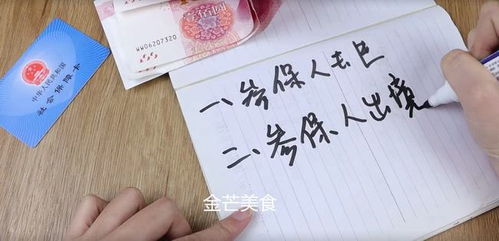 WW06207320
中华人民共和国
社会保障卡
一、参保人去世
二、参保人出境
金芒美食